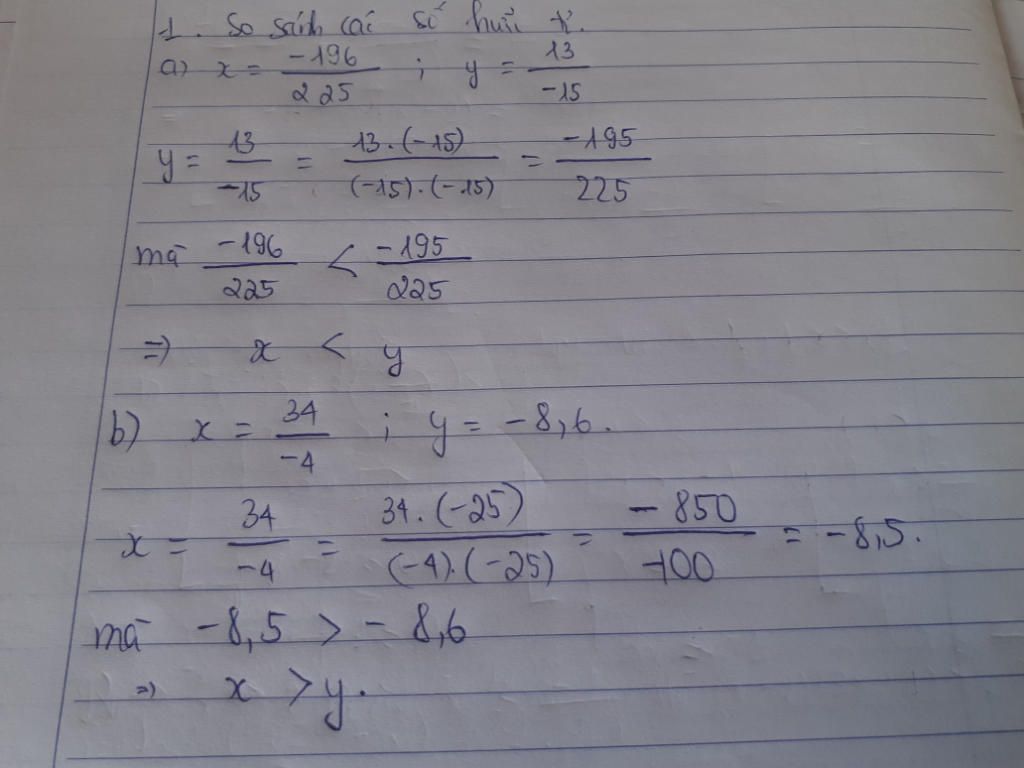 1. So sánh các số hữu tỉ.
a) x = -196/225 ; y = 13/-15
y = 13/-15 = 13.(-15)/(-15).(-15) = -195/225
mà -196/225 < -195/225
=> x < y
b) x = 34/-4 ; y = -8,6.
x = 34/-4 = 34.(-25)/(-4).(-25) = -850/-100 = -8,5.
mà -8,5 > -8,6
=> x > y.